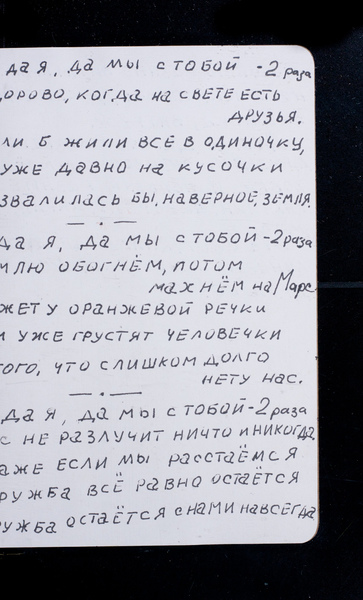 да я, да мы с тобой -2 раза
дорово, когда на свете есть
друзья.
ли б жили все в одиночку,
уже давно на кусочки
звалилась бы, наверное, земля.
да я, да мы с тобой -2 раза
млю обогнём, потом
махнём на Марс.
жет у оранжевой речки
м уже грустят человечки
того, что слишком долго
нету нас.
да я, да мы с тобой -2 раза
с не разлучит ничто и никогда
аже если мы расстаёмся
ружба всё равно остаётся
ружба остаётся с нами навсегда